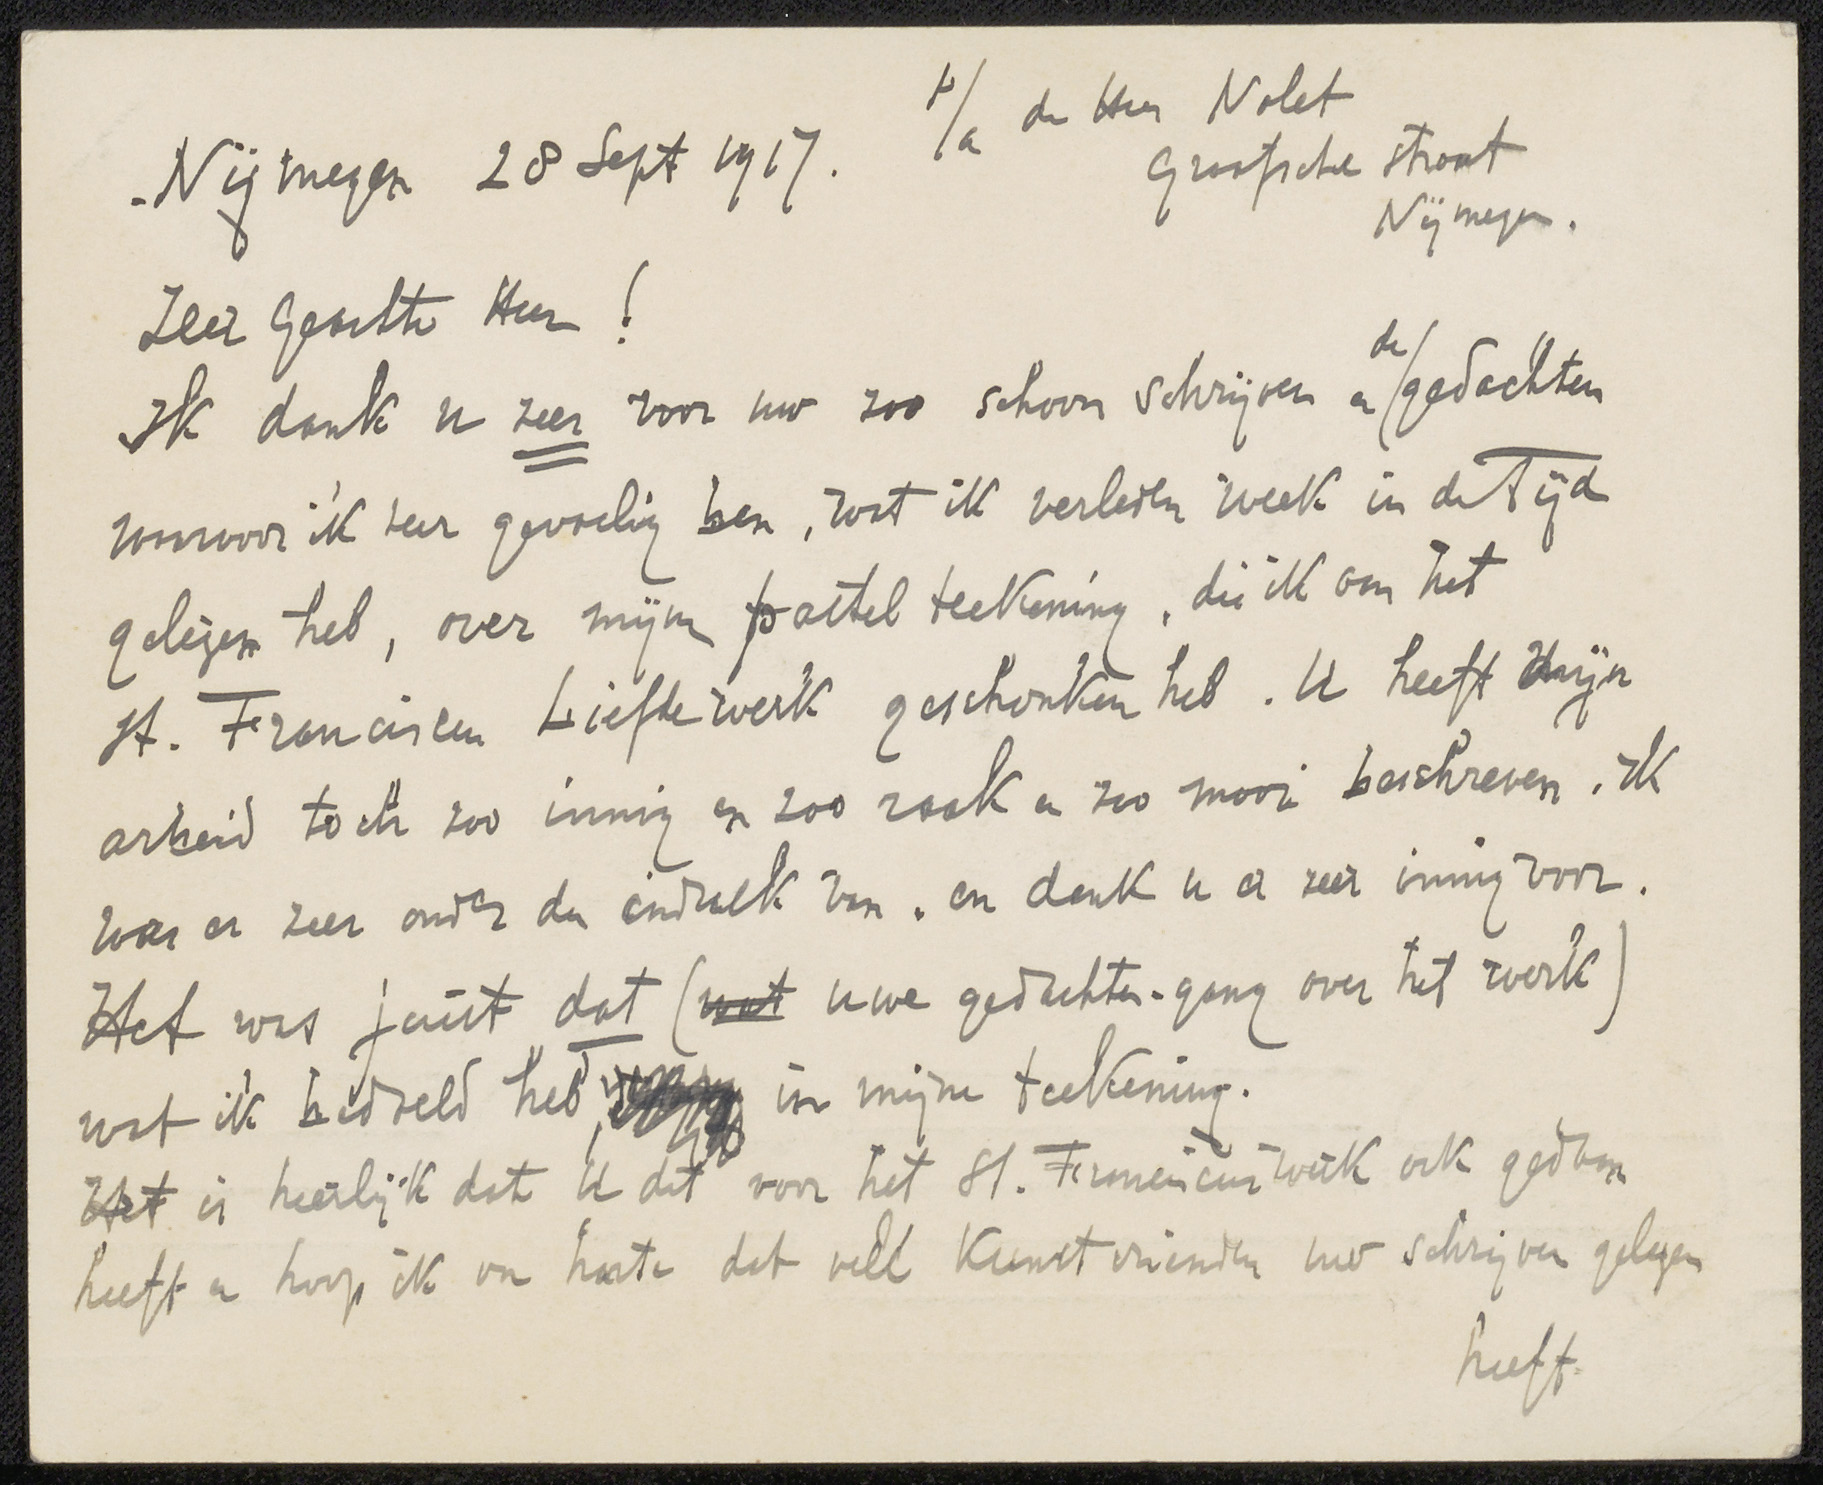 P/a de Heer Nolet
Nijmegen 28 Sept 1917.
Graafsche straat
Nijmegen.
Zeer Geachte Heer!
Ik dank u zeer voor uw zoo schoon schrijven en de gedachten
waarvoor ik zeer gevoelig ben, wat ik verleden week in de Tijd
gelezen heb, over mijn pastel teekening, die ik aan het
St. Franciscus Liefdewerk geschonken heb. U heeft mijn
arbeid toch zoo innig en zoo raak en zoo mooi beschreven. Ik
was er zeer onder den indruk van, en dank u er zeer innig voor.
Het was juist dat (wat uwe gedachten-gang over het werk)
wat ik bedoeld heb, in mijne teekening.
Het is heerlijk dat U dit voor het St. Franciscuswerk ook gedaan
heeft en hoop ik van harte dat veel Kunstvrienden uw schrijven gelezen
heeft